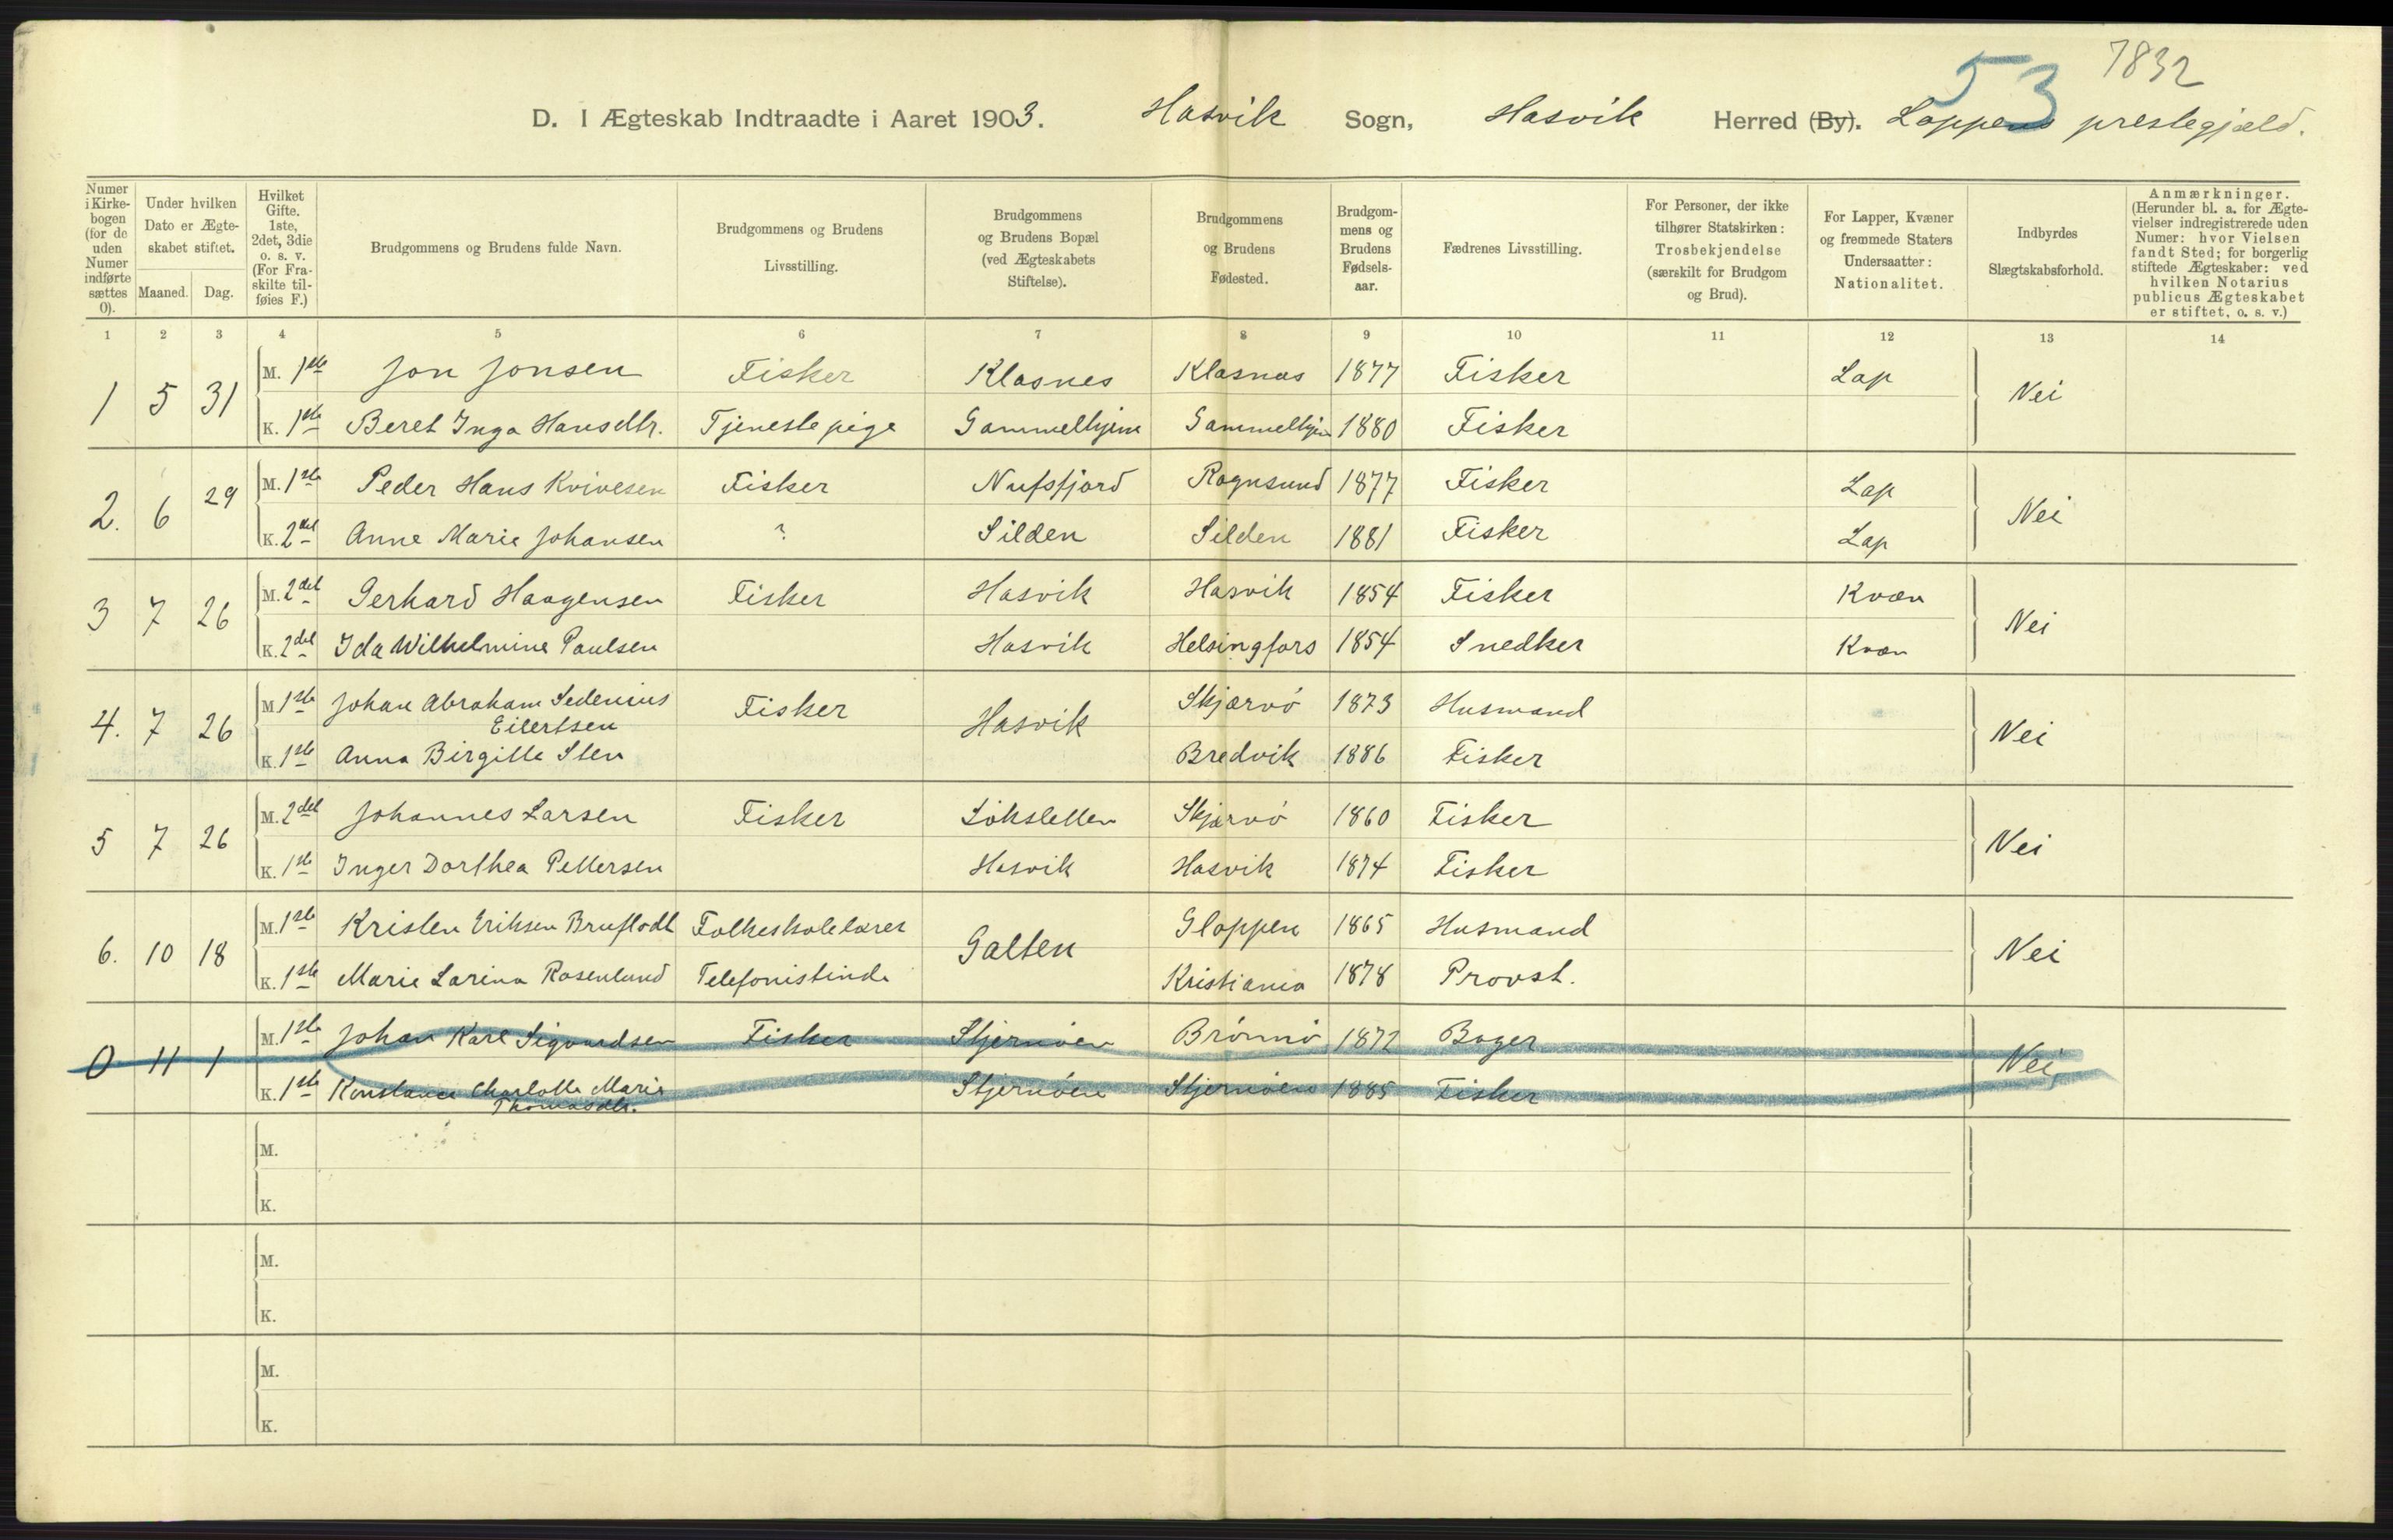 7832
53
D. I Ægteskab Indtraadte i Aaret 1903. Hasvik Sogn, Hasvik Herred (By). Loppens prestegjæld.
Numer i Kirkebogen (for de uden Numer indførte sættes 0).
Under hvilken Dato er Ægteskabet stiftet.
Maaned. Dag.
Hvilket Gifte. 1ste, 2det, 3die o. s. v. (For Fraskilte tilføies F.)
Brudgommens og Brudens fulde Navn.
Brudgommens og Brudens Livsstilling.
Brudgommens og Brudens Bopæl (ved Ægteskabets Stiftelse).
Brudgommens og Brudens Fødested.
Brudgommens og Brudens Fødselsaar.
Fædrenes Livsstilling.
For Personer, der ikke tilhører Statskirken: Trosbekjendelse (særskilt for Brudgom og Brud).
For Lapper, Kvæner og fremmede Staters Undersaatter: Nationalitet.
Indbyrdes Slægtskabsforhold.
Anmærkninger. (Herunder bl. a. for Ægtevielser indregistrerede uden Numer: hvor Vielsen fandt Sted; for borgerlig stiftede Ægteskaber: ved hvilken Notarius publicus Ægteskabet er stiftet, o. s. v.)
1 2 3 4 5 6 7 8 9 10 11 12 13 14
1 5 31 M. 1ste Jon Jonsen Fisker Klasnes Klasnes 1877 Fisker Lap Nei
K. 1ste Beret Inga Hansdtr. Tjenestepige Gammelhjem Gammelhjem 1880 Fisker
2. 6 29 M. 1ste Peder Hans Kvivesen Fisker Nufsfjord Rognsund 1877 Fisker Lap Nei
K. 2det Anne Marie Johansen ? Silden Silden 1881 Fisker Lap
3 7 26 M. 2det Gerhard Haagensen Fisker Hasvik Hasvik 1854 Fisker Kvæn Nei
K. 2det Ida Wilhelmine Paulsen Hasvik Helsingfors 1854 Snedker Kvæn
4. 7 26 M 1ste Johan Abraham Sedenius Eilertsen Fisker Hasvik Skjærvö 1873 Husmand Nei
K. 1ste Anna Birgitte Sten Bredvik 1886 Fisker
5 7 26 M. 2det Johannes Larsen Fisker Löksletten Skjærvö 1860 Fisker Nei
K. 1ste Inger Dorthea Pettersen Hasvik Hasvik 1874 Fisker
6. 10 18 M. 1ste Kristen Eriksen Bruflodt Folkeskolelærer Galten Gloppen 1865 Husmand Nei
K. 1ste Marie Larina Rosenlund Telefonistinde Kristiania 1878 Provst.
0 11 1 M. 1ste Johan Karl Sigvardsen Fisker Stjernöen Brönnö 1872 Bager Nei
K. 1ste Konstance Charlotte Marie Thomasdtr. Stjernöen Stjernöen 1885 Fisker
M.
K.
M.
K.
M.
K.